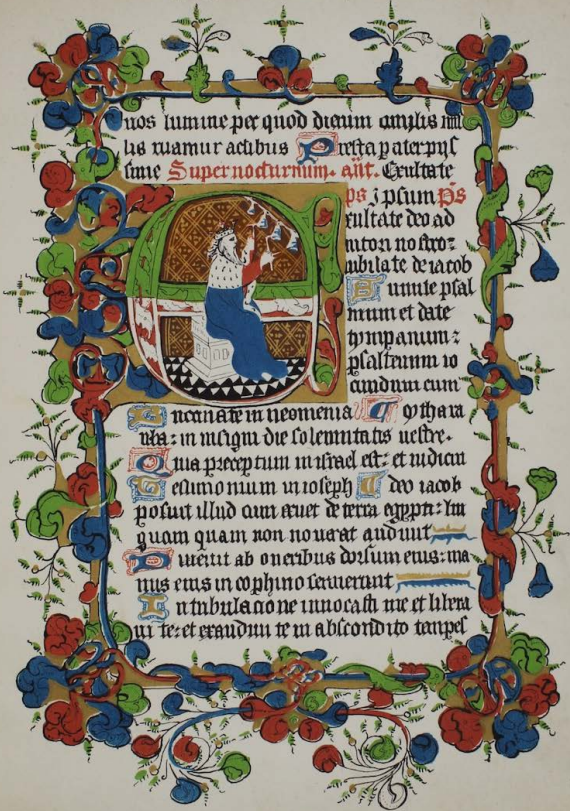 nos lumine per quod dierum
lis ruamur actibus Presta pater piis
sime Super nocturnum. añt. Exultate
ps ipsum Ps
Exultate deo ad
iutori nostro:
iubilate deiacob
Sumite psal
mum et date
tympanum:
psalterium io
cundum cum
Buccinate in neomenia cythara
tuba: in insigni die solemnitatis uestre.
Quia preceptum in israel est: et iudiciu
Testimonium in ioseph deo iacob
posuit illud cum exuet de terra egypti: lin
quam quam non nouerat audiuit
Diuertit ab oneribus dorsum eius: ma
nus eius in cophino seruierunt
In tribulacione inuocasti me et libera
ui te: et exaudiui te in abscondito tempes